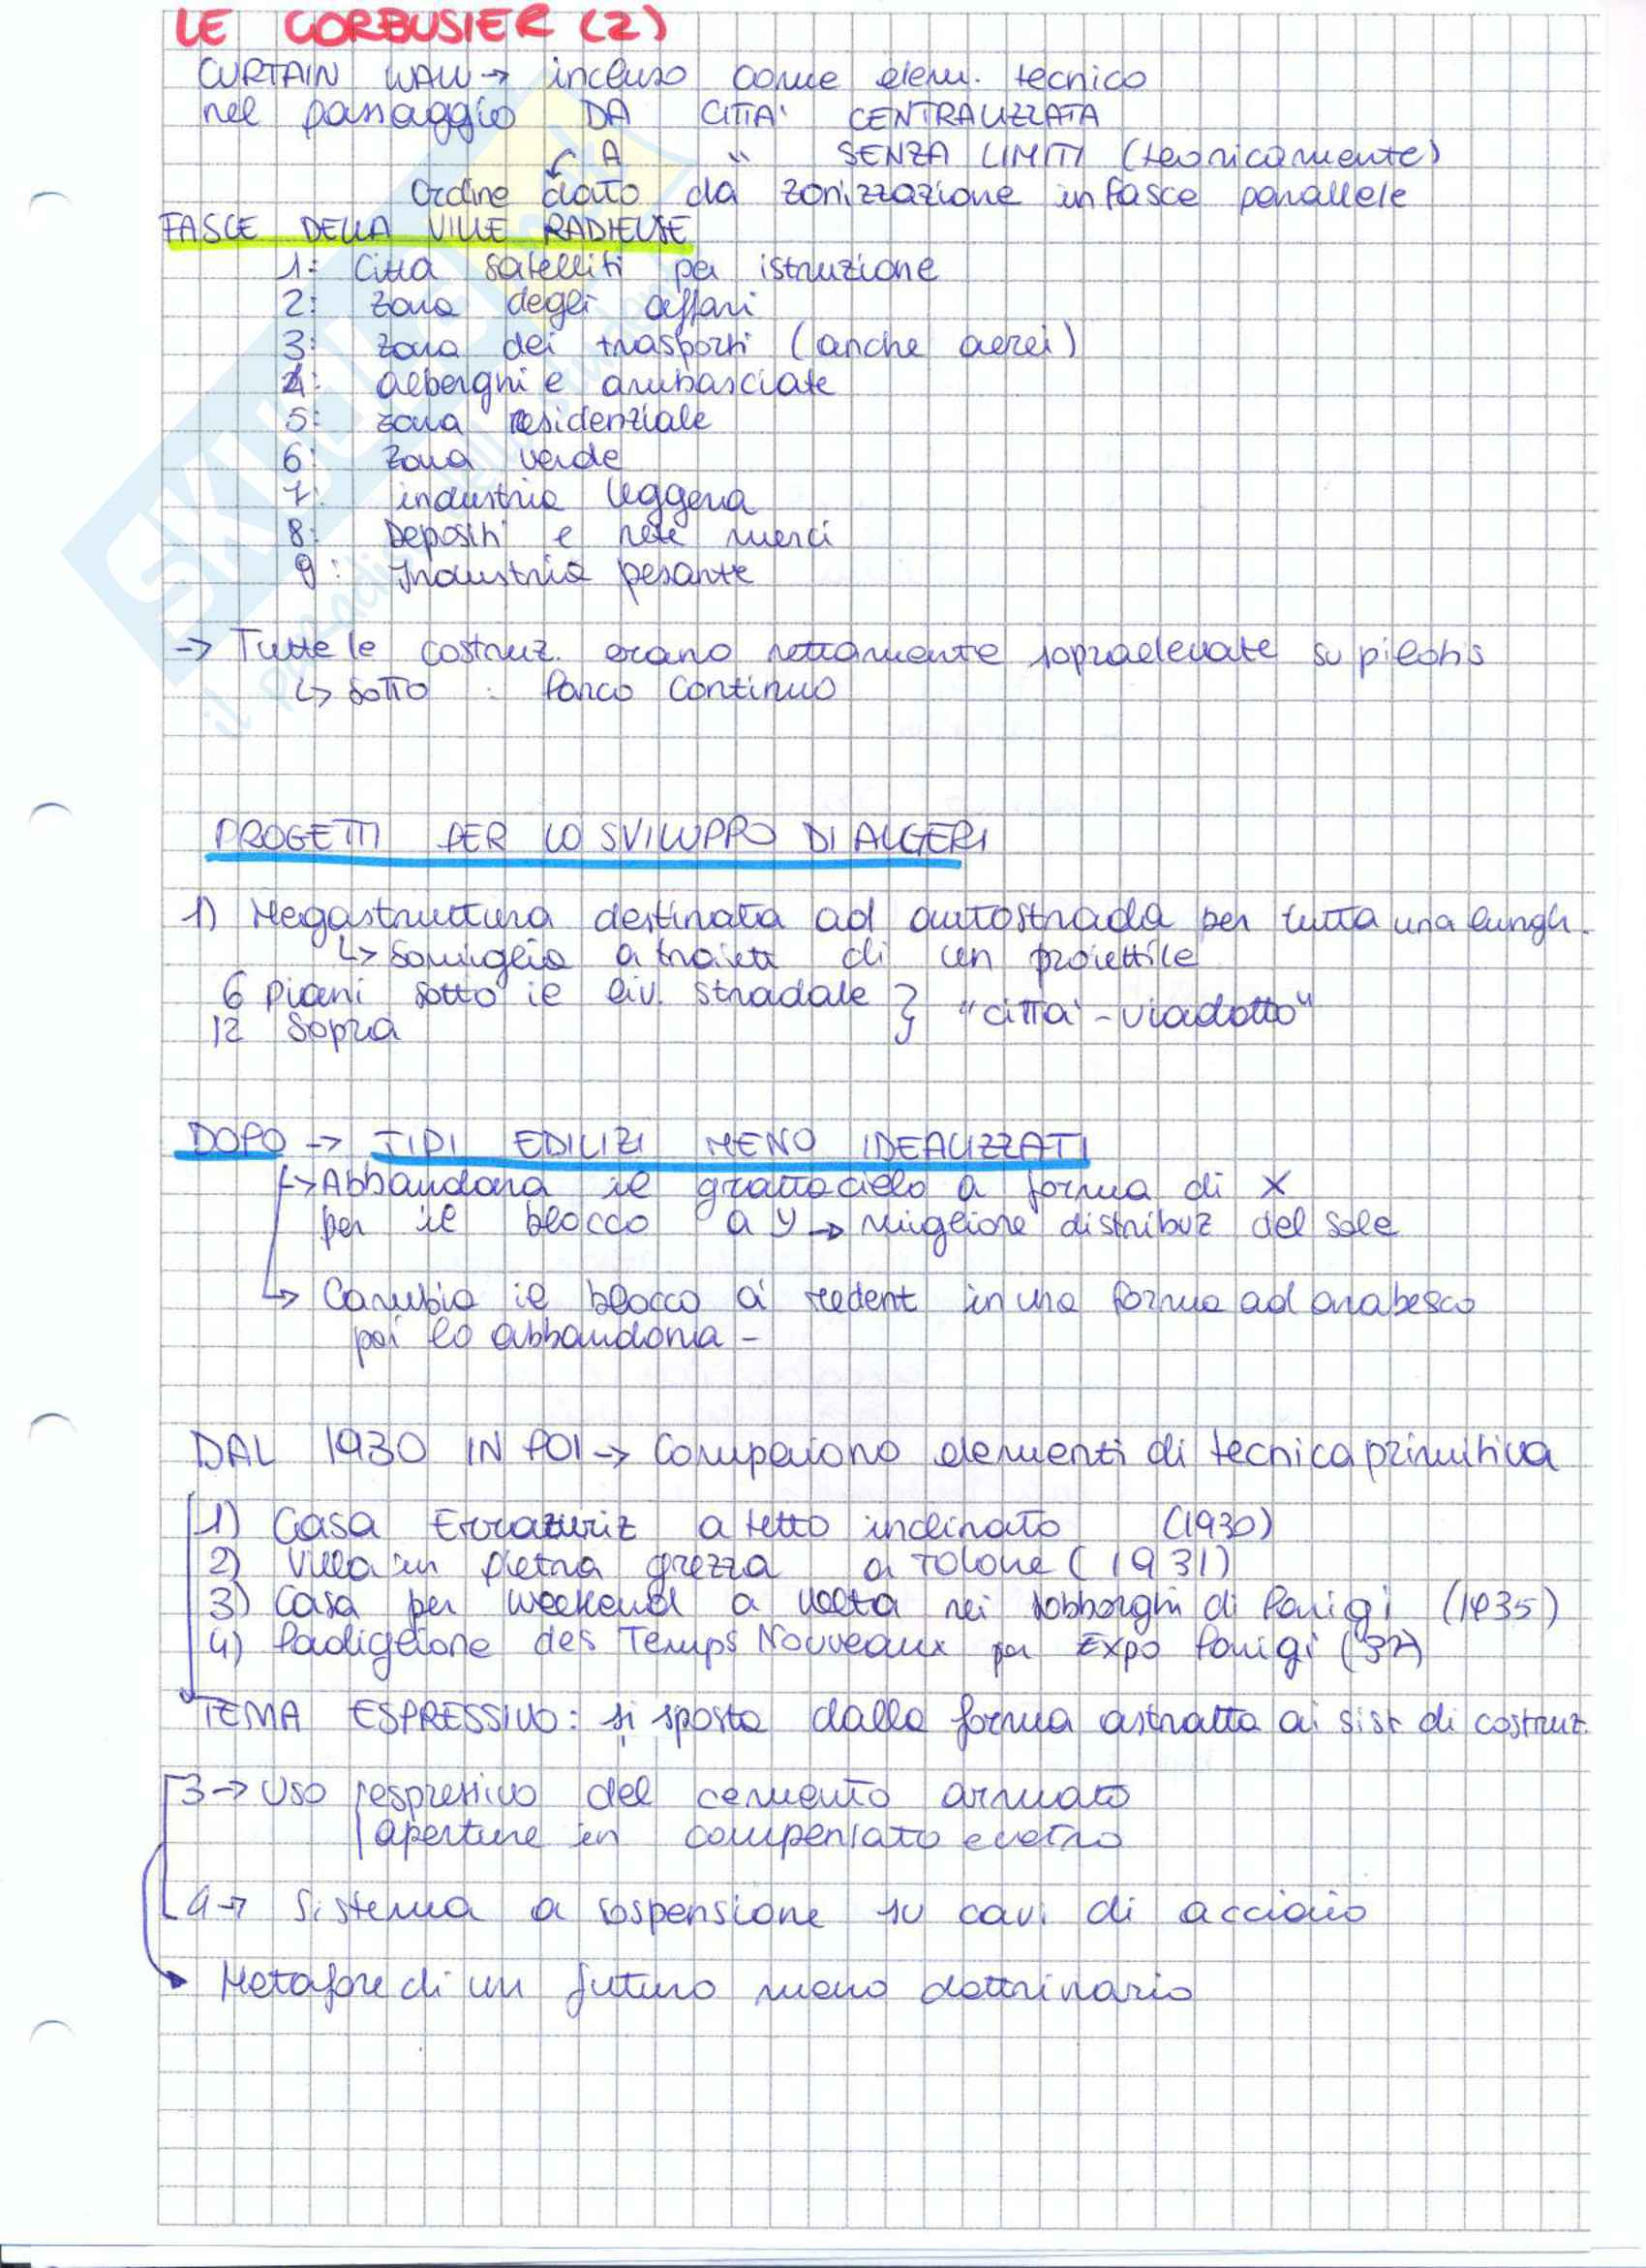 LE CORBUSIER (2)
CURTAIN WALL → incluso come elem. tecnico
nel passaggio DA CITTA' CENTRALIZZATA
A " SENZA LIMITI (teoricamente)
Ordine dato da zonizzazione in fasce parallele
FASCE DELLA VILLE RADIEUSE
1: Città satelliti per istruzione
2: zona degli affari
3: zona dei trasporti (anche aerei)
4: alberghi e ambasciate
5: zona residenziale
6: zona verde
7: industria leggera
8: Depositi e rete merci
9: Industria pesante
→ Tutte le costruz. erano nettamente sopraelevate su pilotis
↳ sotto : Parco continuo
PROGETTI PER LO SVILUPPO DI ALGERI
1) Megastruttura destinata ad autostrada per tutta una lungh.
↳ somiglia a traiett di un proiettile
6 piani sotto il liv. stradale } "città-viadotto"
12 sopra
DOPO → TIPI EDILIZI MENO IDEALIZZATI
↳ Abbandona il grattacielo a forma di X
per il blocco a Y → migliore distribuz del sole
↳ Cambia il blocco a' redent in una forma ad arabesco
poi lo abbandona -
DAL 1930 IN POI → Compaiono elementi di tecnica primitiva
1) Casa Errazuriz a tetto inclinato (1930)
2) Villa in pietra grezza a Tolone (1931)
3) Casa per weekend a volta nei sobborghi di Parigi (1935)
4) Padiglione des Temps Nouveaux per Expo Parigi ('37)
TEMA ESPRESSIVO: si sposta dalla forma astratta ai sist di costruz.
3 → Uso espressivo del cemento armato
aperture in compensato e vetro
4 → Sistema a sospensione su cavi di acciaio
Metafore di un futuro meno dottrinario